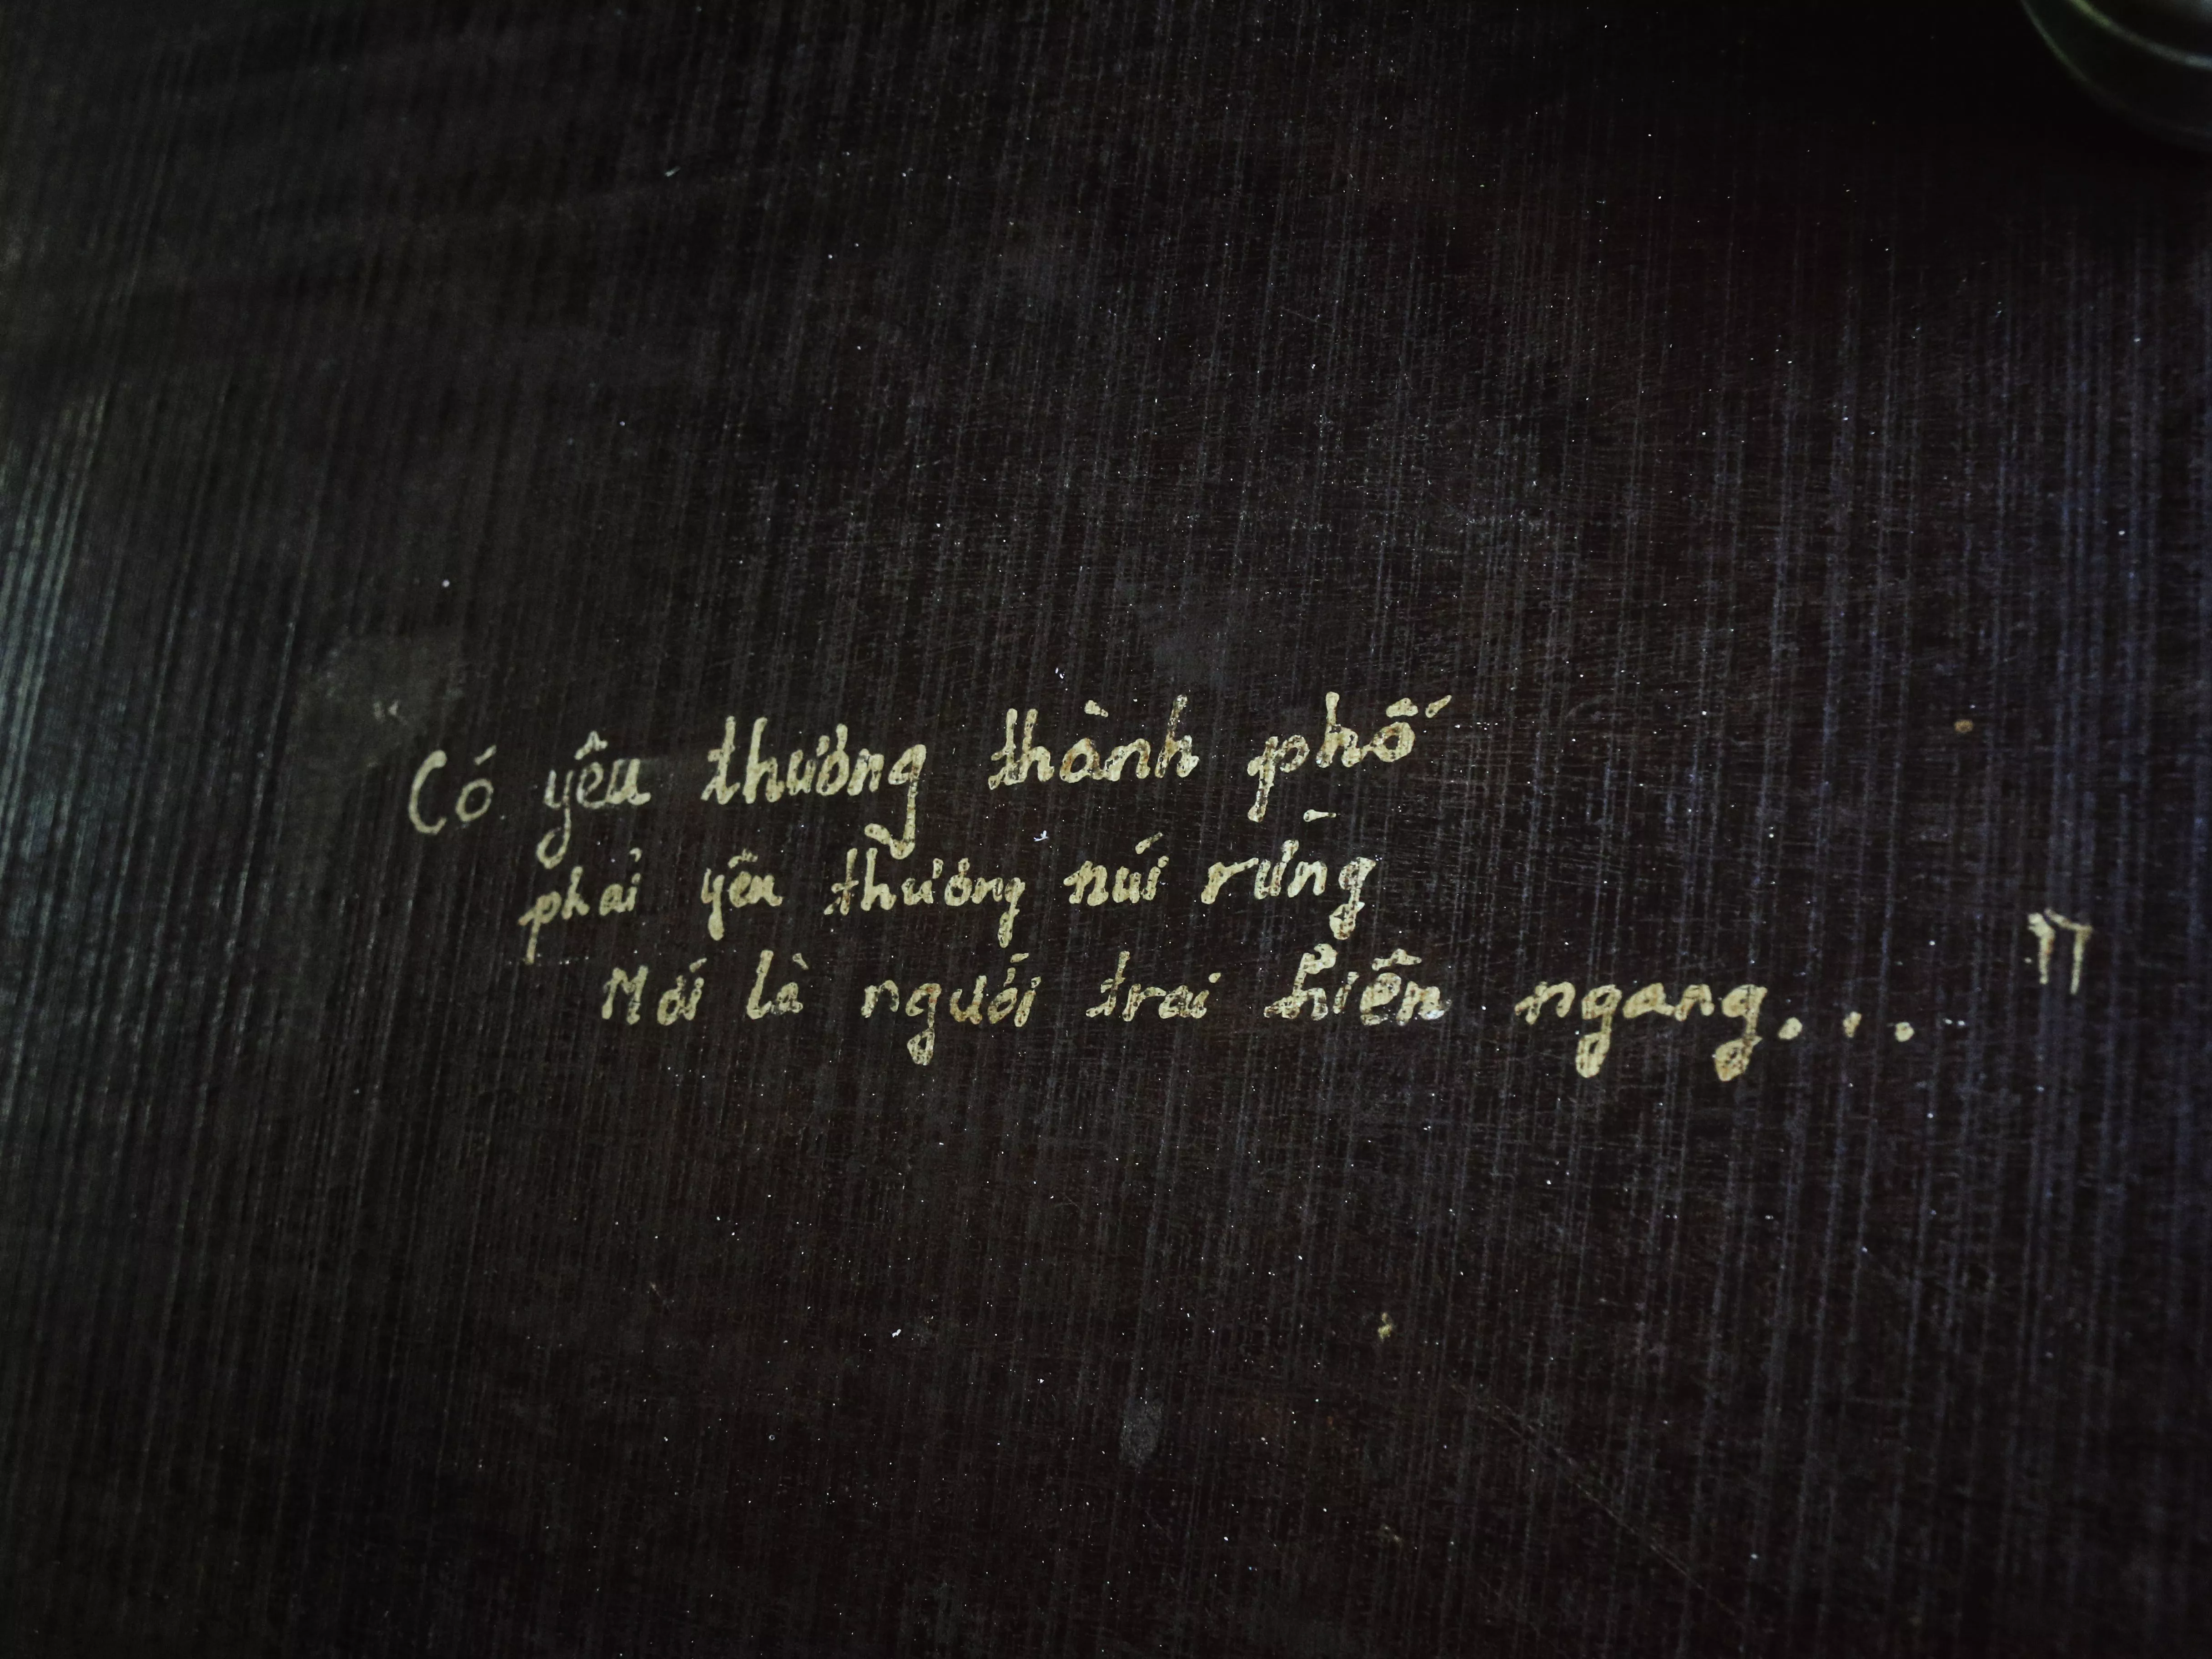 Có yêu thương thành phố
phải yêu thương núi rừng
Mới là người trai hiên ngang... "